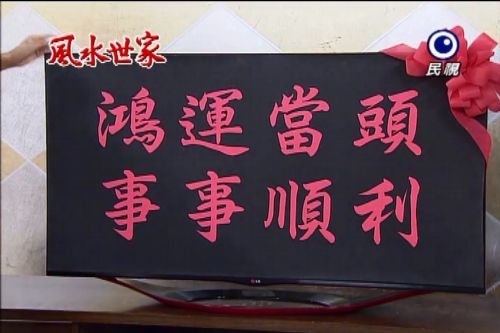 風水世家
民視
鴻運當頭
事事順利
LG